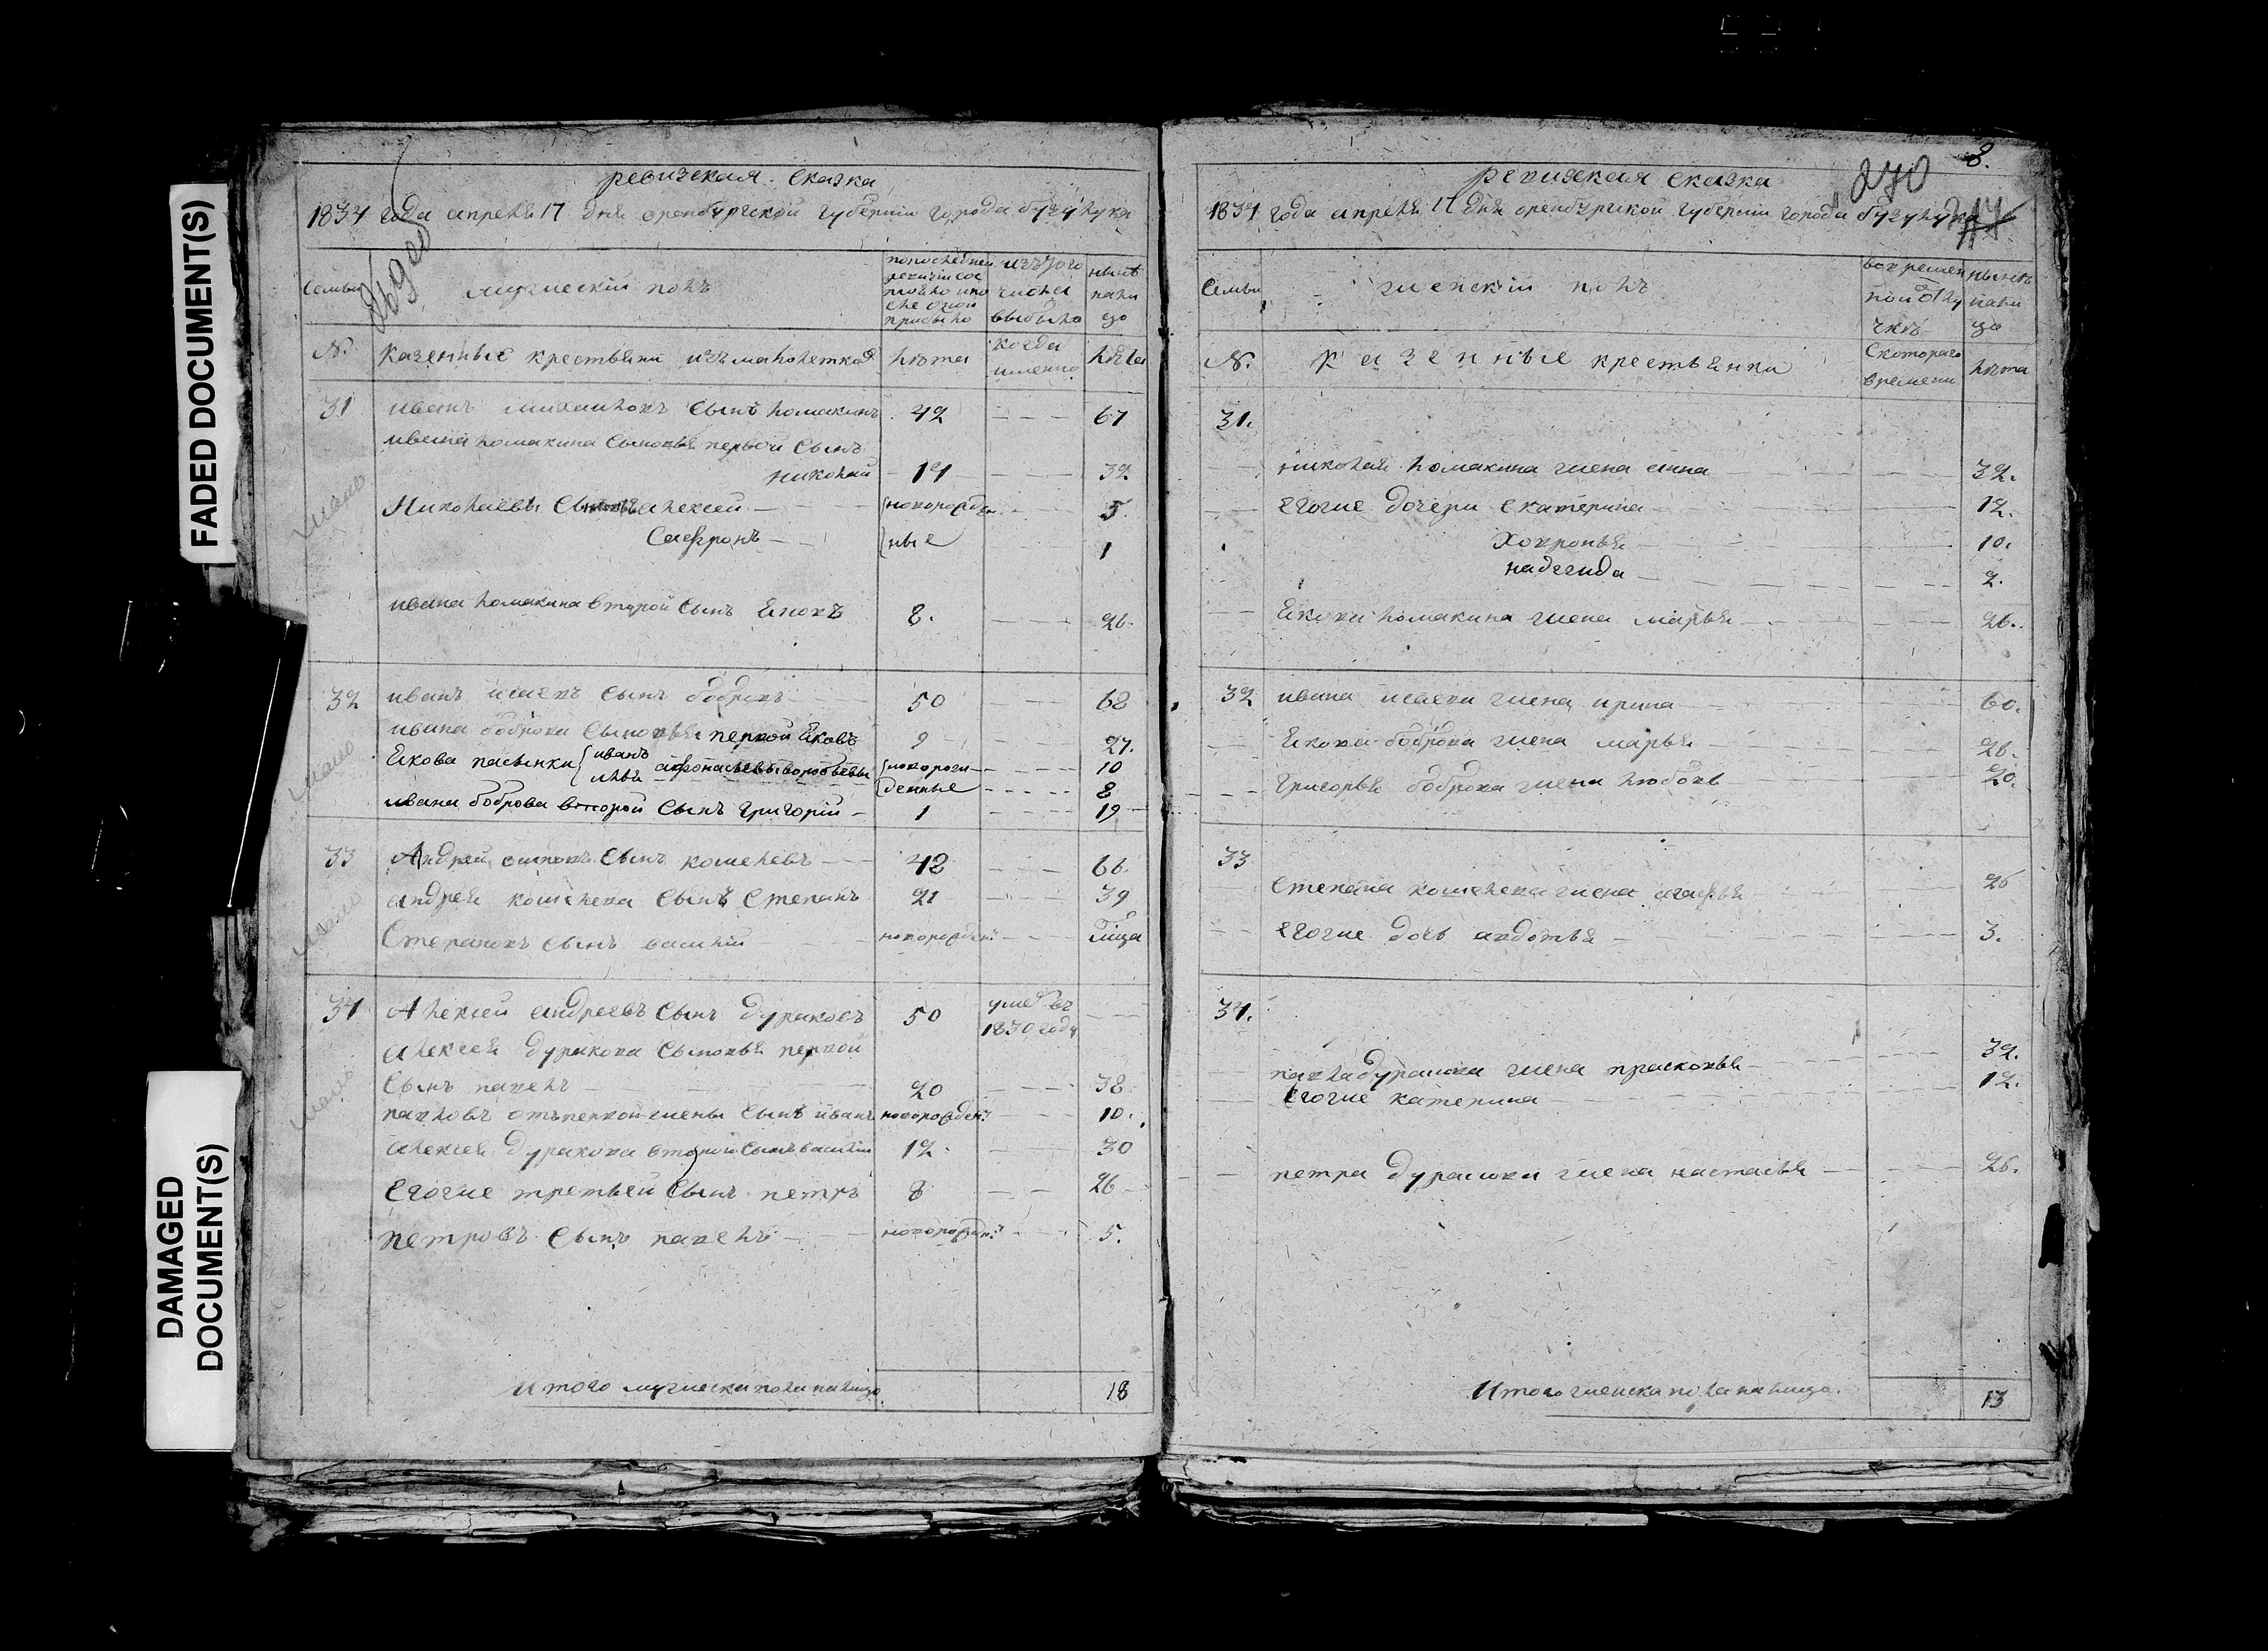 FADED DOCUMENT(S)
DAMAGED
DOCUMENT(S)
ревизская. сказка
1834 года апреля 17 дня оренбургской губернии города бузулука
Семьи
мужеский полъ
по последней ревизии состояло и после оной прибыло
изъ того числа выбыло
ныне налицо
№.
казенные крестьяни изъ малолетковъ
лѣта
когда именно
лѣта
31 иванъ михаиловъ сынъ ломакинъ 42 67
ивана ломакина сыновья первой сынъ
николай 14 32
Николаевы сыновья алексей новорожден 5.
Сафронъ ные 1
ивана ломакина второй сынъ Яковъ 8. 26.
32 иванъ исаевъ сынъ бобровъ 50 68
ивана боброва сыновья первой Яковъ 9 27.
Якова пасынки иванъ афонасьевы воробьевы новорож 10
денные 8
ивана боброва второй сынъ григорій 1 19
33 Андрей осиповъ сынъ кошелевъ 48 66.
андрея кошелева сынъ Степанъ 21 39
Степановъ сынъ василій новорожден:
34 Алексей андреевъ сынъ дураковъ 50 умеръ въ
1830 году
алексея дуракова сыновья первой
сынъ павелъ 20 38
павловъ отъ первой жены сынъ иванъ новорожден: 10.
алексея дуракова второй сынъ василій 12. 30
Егоже третьей сынъ петръ 8 26
петровъ сынъ павелъ новорожден: 5.
Итого мужеска пола налицо 18
8.
270
ревизкая сказка
1834 года апреля 17 дня оренбургской губернии города бузулука
Семьи
женскій полъ
во временной отлучкѣ
нынѣ налицо
№.
казенные крестьянки
Скотораго времени
лѣта
31.
николая ломакина жена анна 32.
егоже дочери екатерина 12.
Ховронья 10.
надежда 2.
Якова ломакина жена марья 26.
32 ивана исаева жена ирина 60.
Якова боброва жена марья 26.
григорья боброва жена любовь 20.
33
Степана кошелева жена агафья 26
егоже дочь авдотья 3.
34.
павла дуракова жена прасковья 32.
Егоже катерина 12.
петра дуракова жена настасья 26.
Итого женска пола налицо. 13